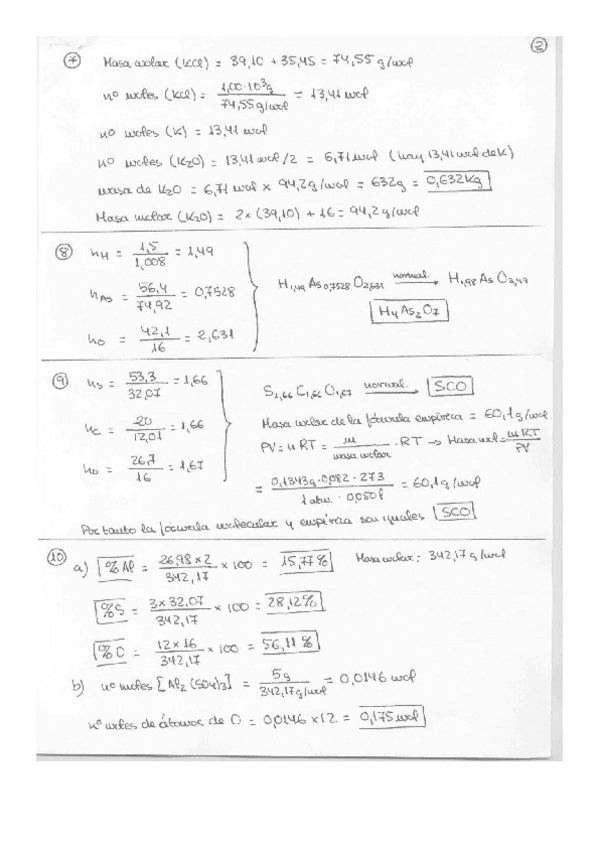 ②
⑦ Masa molar (KCl) = 39,10 + 35,45 = 74,55 g/mol
nº moles (KCl) = 1,00·10³g / 74,55 g/mol = 13,41 mol
nº moles (K) = 13,41 mol
nº moles (K₂O) = 13,41 mol/2 = 6,71 mol (hay 13,41 mol de K)
masa de K₂O = 6,71 mol × 94,2 g/mol = 632g = 0,632 Kg
Masa molar (K₂O) = 2×(39,10) + 16 = 94,2 g/mol
⑧ nH = 1,5 / 1,008 = 1,49
nAs = 56,4 / 74,92 = 0,7528
nO = 42,1 / 16 = 2,631
H1,49 As0,7528 O2,631 normal. → H1,98 As O3,49
H₄As₂O₇
⑨ nS = 53,3 / 32,07 = 1,66
nC = 20 / 12,01 = 1,66
nO = 26,7 / 16 = 1,67
S1,66 C1,66 O1,67 normal. → SCO
Masa molar de la fórmula empírica = 60,1 g/mol
PV = nRT = m / masa molar · RT → Masa mol = mRT / PV
= 0,1343g · 0,082 · 273 / 1 atm. · 0,050 l = 60,1 g/mol
Por tanto la fórmula molecular y empírica son iguales SCO
⑩ a) %Al = 26,98 × 2 / 342,17 × 100 = 15,77% Masa molar: 342,17 g/mol
%S = 3 × 32,07 / 342,17 × 100 = 28,12%
%O = 12 × 16 / 342,17 × 100 = 56,11%
b) nº moles [Al₂(SO₄)₃] = 5g / 342,17 g/mol = 0,0146 mol
nº moles de átomos de O = 0,0146 × 12 = 0,175 mol